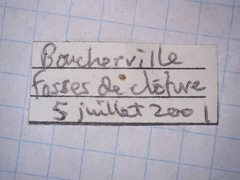 Boucherville
fosses de clôture
5 juillet 2001